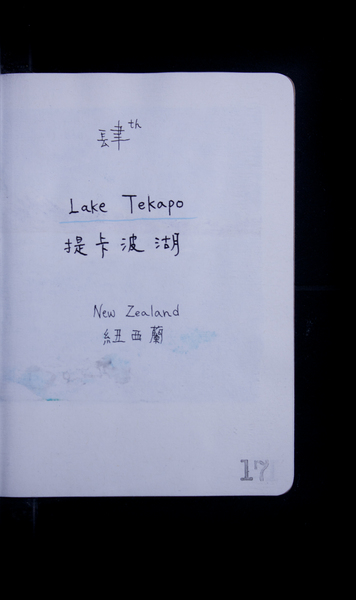 肆th
Lake Tekapo
提卡波湖
New Zealand
紐西蘭
17